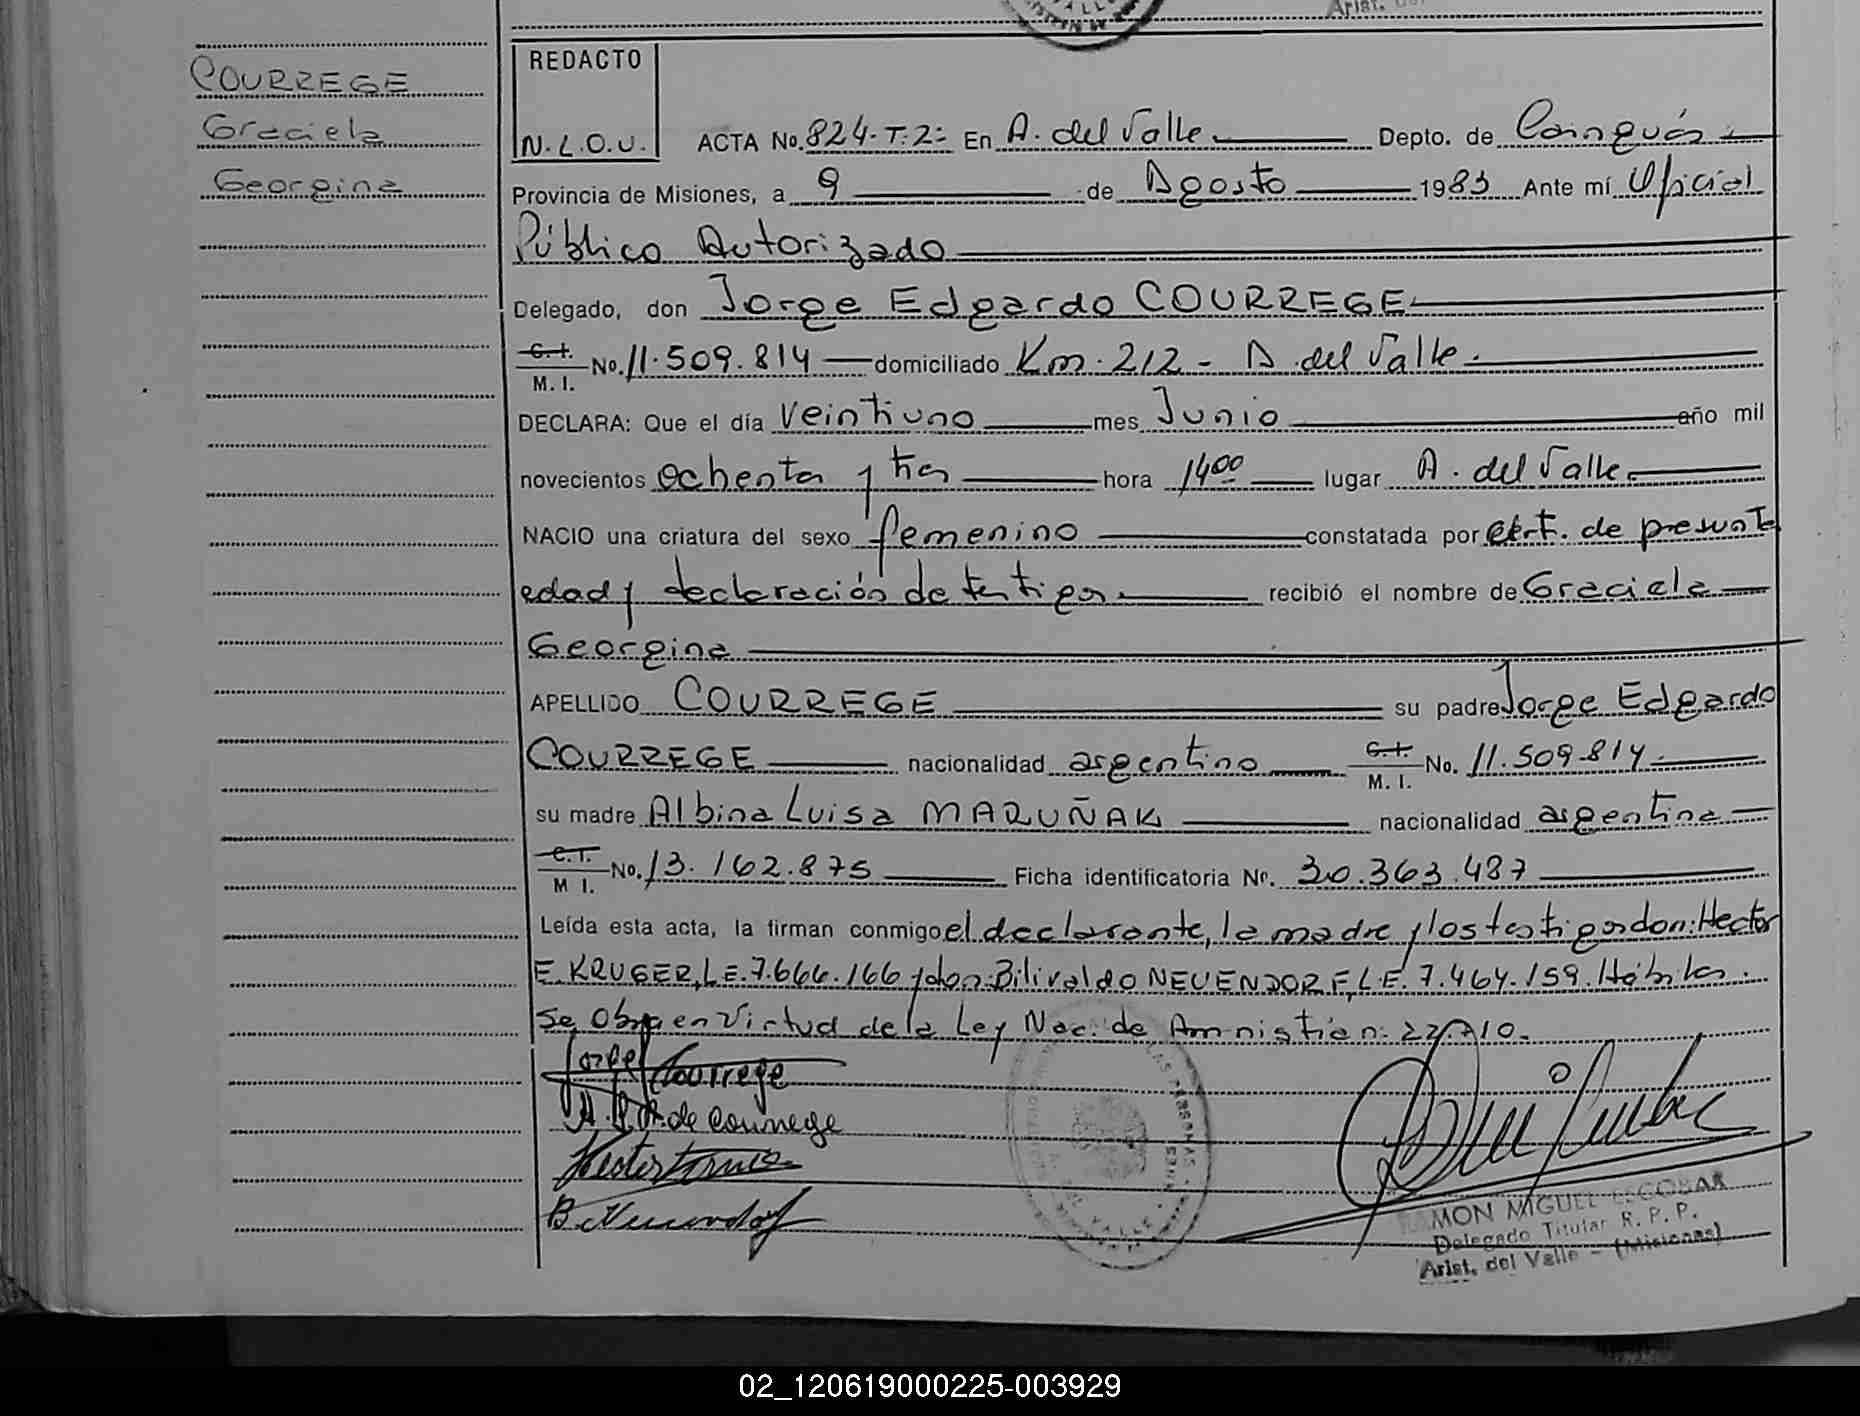 COURREGE
Graciela
Georgina
REDACTO
N.L.O.U.
ACTA No. 824-T.2= En A. del Valle Depto. de Cainguás
Provincia de Misiones, a 9 de Agosto 1983 Ante mí Oficial
Público Autorizado
Delegado, don Jorge Edgardo COURREGE
C.I. M. I. No. 11.509.814 domiciliado Km. 212 - A. del Valle.
DECLARA: Que el día veintiuno mes Junio año mil
novecientos ochenta y tres hora 1400 lugar A. del Valle
NACIO una criatura del sexo femenino constatada por cert. de presunta
edad y declaración de testigos. recibió el nombre de Graciela
Georgina
APELLIDO COURREGE su padre Jorge Edgardo
COURREGE nacionalidad argentino C.I. M. I. No. 11.509.814.
su madre Albina Luisa MARUÑAK nacionalidad argentina
C.I. M I. No. 13.162.875 Ficha identificatoria Nº. 30.363.487
Leída esta acta, la firman conmigo el declarante, la madre y los testigos don: Hector
E. KRUGER, L.E. 7.666.166 y don: Bilivaldo NEUENDORF, L.E. 7.464.159. Hábiles.
Se Obra en Virtud de la Ley Nac. de Amnistía n: 22.710.
Jorge Courrege
de Courrege
B. Neuendorf
RAMON MIGUEL ESCOBAR
Delegado Titular R. P. P.
Arist. del Valle - (Misiones)
02_120619000225-003929